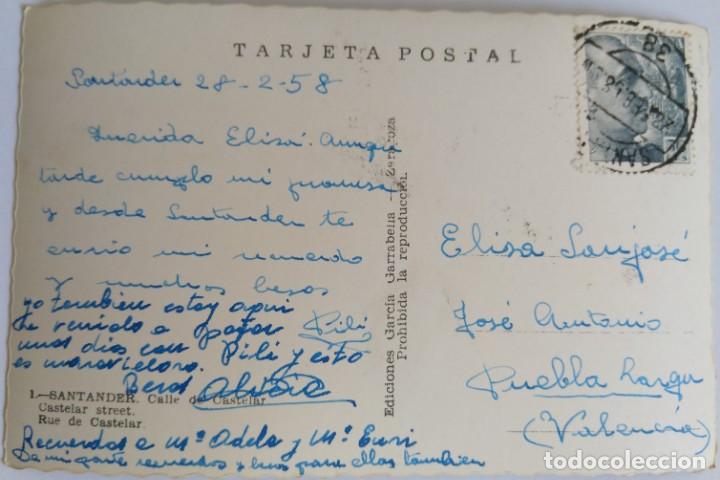 TARJETA POSTAL
Santander 28-2-58
Querida Elisa: Aunque
tarde cumplo mi promesa
y desde Santander te
envio mi recuerdo
y muchos besos
Pili
yo tembien estoy aqui
he venido a pasar
unos dias con Pili y esto
es maravilloso.
Besos
1.—SANTANDER. Calle de Castelar
Castelar street.
Rue de Castelar.
Recuerdos a Mª Adela y Mª Euri
De mi parte recuerdos y besos para ellas tambien
Ediciones García Garrabella — Zaragoza
Prohibida la reproducción.
Elisa Sanjosé
José Antonio
Puebla Larga
(Valencia)
todocoleccion.net